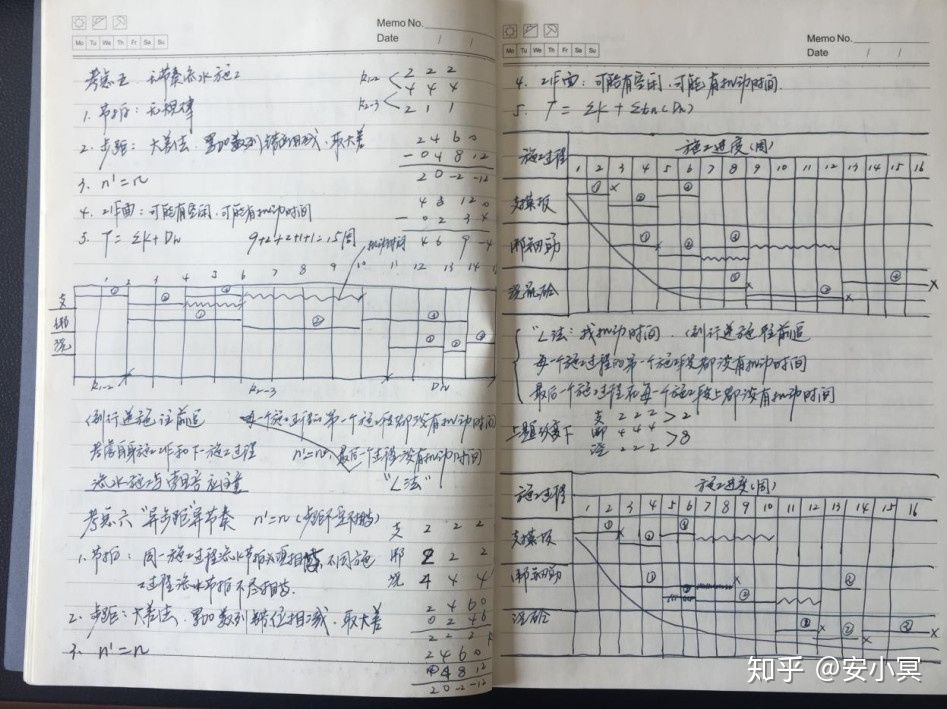 Memo No.
Date / /
Mo Tu We Th Fr Sa Su
考点五 无节奏流水施工
K1-2 2 2 2
4 4 4
K2-3 2 1 1
1. 节拍：无规律
2. 步距：大差法，累加数列错位相减，取大差
2 4 6 0
- 0 4 8 12
2 0 -2 -12
3. n'=n
4 8 12 0
- 0 2 3 4
4 6 9 -4
4. 工作面：可能有空闲，可能有机动时间
5. T=ΣK+Dn 9+2+2+1+1=15周
机动时间
1 2 3 4 5 6 7 8 9 10 11 12 13 14 15
支
绑
浇
K1-2 K2-3 Dn
倒行逆施往前追 每一个施工过程的第一个施工段都没有机动时间
考虑自身施工工作和下一施工过程 n'=n 最后一个过程没有机动时间
流水施工与 "L法"
考点六 "异步距异节奏 n'=n (步距不一定相等)
支 2 2 2
1. 节拍：同一施工过程流水节拍必须相等，不同施工
绑 2 2 2
过程流水节拍不尽相等.
浇 4 4 4
2 4 6 0
2. 步距：大差法，累加数列错位相减，取大差
0 2 4 6
2 2 2
3. n'=n
2 4 6 0
0 4 8 12
2 0 -2 -12
Memo No.
Date / /
Mo Tu We Th Fr Sa Su
4. 工作面：可能有空闲，可能有机动时间.
5. T=ΣK+Σtn(Dn)
施工过程 施工进度(周)
1 2 3 4 5 6 7 8 9 10 11 12 13 14 15 16
支模板
绑钢筋
浇砼
"L法：找机动时间.（倒行逆施往前追
每一个施工过程的第一个施工段都没有机动时间
最后一个施工过程在每一个施工段上都没有机动时间
支 2 2 2 >2
上题改变下 绑 4 4 4
浇 2 2 2 >8
施工过程 施工进度(周)
1 2 3 4 5 6 7 8 9 10 11 12 13 14 15 16
支模板
绑钢筋
浇砼
知乎 @安小冥